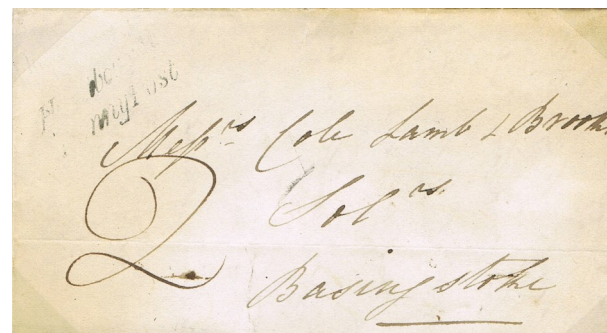 Messrs Cole Lamb & Brooks
2
Solrs
Basingstoke